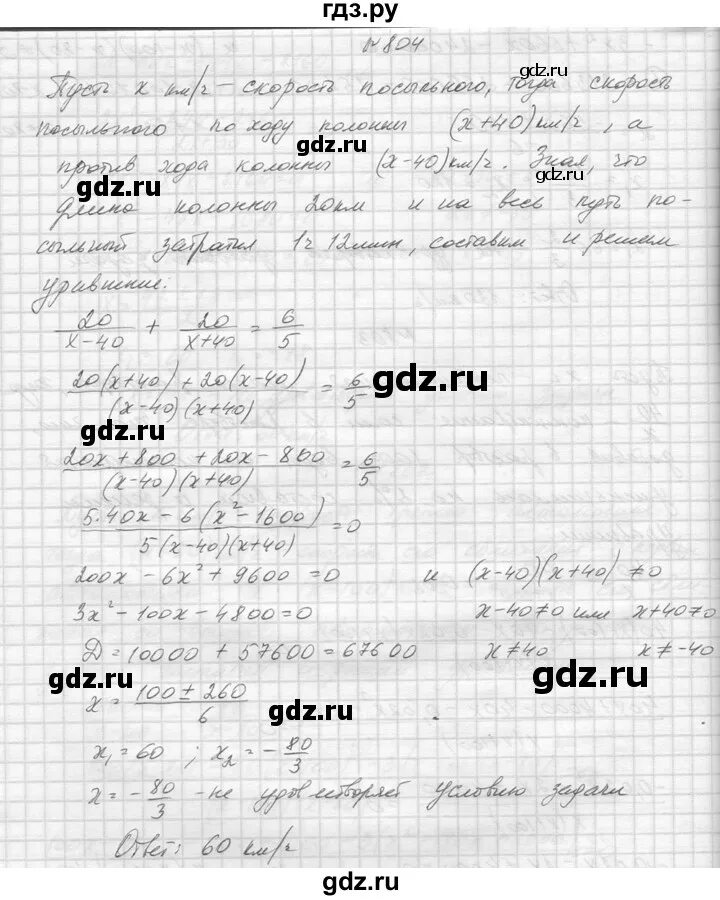 гдз.ру
№ 804
Пусть x км/ч – скорость посыльного, тогда скорость
gdz.ru
посыльного по ходу колонны (x+40) км/ч, а
против хода колонны (x-40) км/ч. Зная, что
gdz.ru
gdz.ru
длина колонны 20 км и на весь путь по-
сыльный затратил 1ч 12мин, составим и решим
уравнение:
20/(x-40) + 20/(x+40) = 6/5
(20(x+40) + 20(x-40))/((x-40)(x+40)) = 6/5
gdz.ru
gdz.ru
(20x + 800 + 20x - 800)/((x-40)(x+40)) = 6/5
(5·40x - 6(x² - 1600))/(5(x-40)(x+40)) = 0
200x - 6x² + 9600 = 0 и (x-40)(x+40) ≠ 0
3x² - 100x - 4800 = 0 x-40≠0 или x+40≠0
D = 10000 + 57600 = 67600 x≠40 x≠-40
gdz.ru
gdz.ru
x = (100 ± 260)/6
gdz.ru
x₁ = 60 ; x₂ = -80/3
x = -80/3 - не удовлетворяет условию задачи
Ответ: 60 км/ч
gdz.ru
gdz.ru
гдз.ру